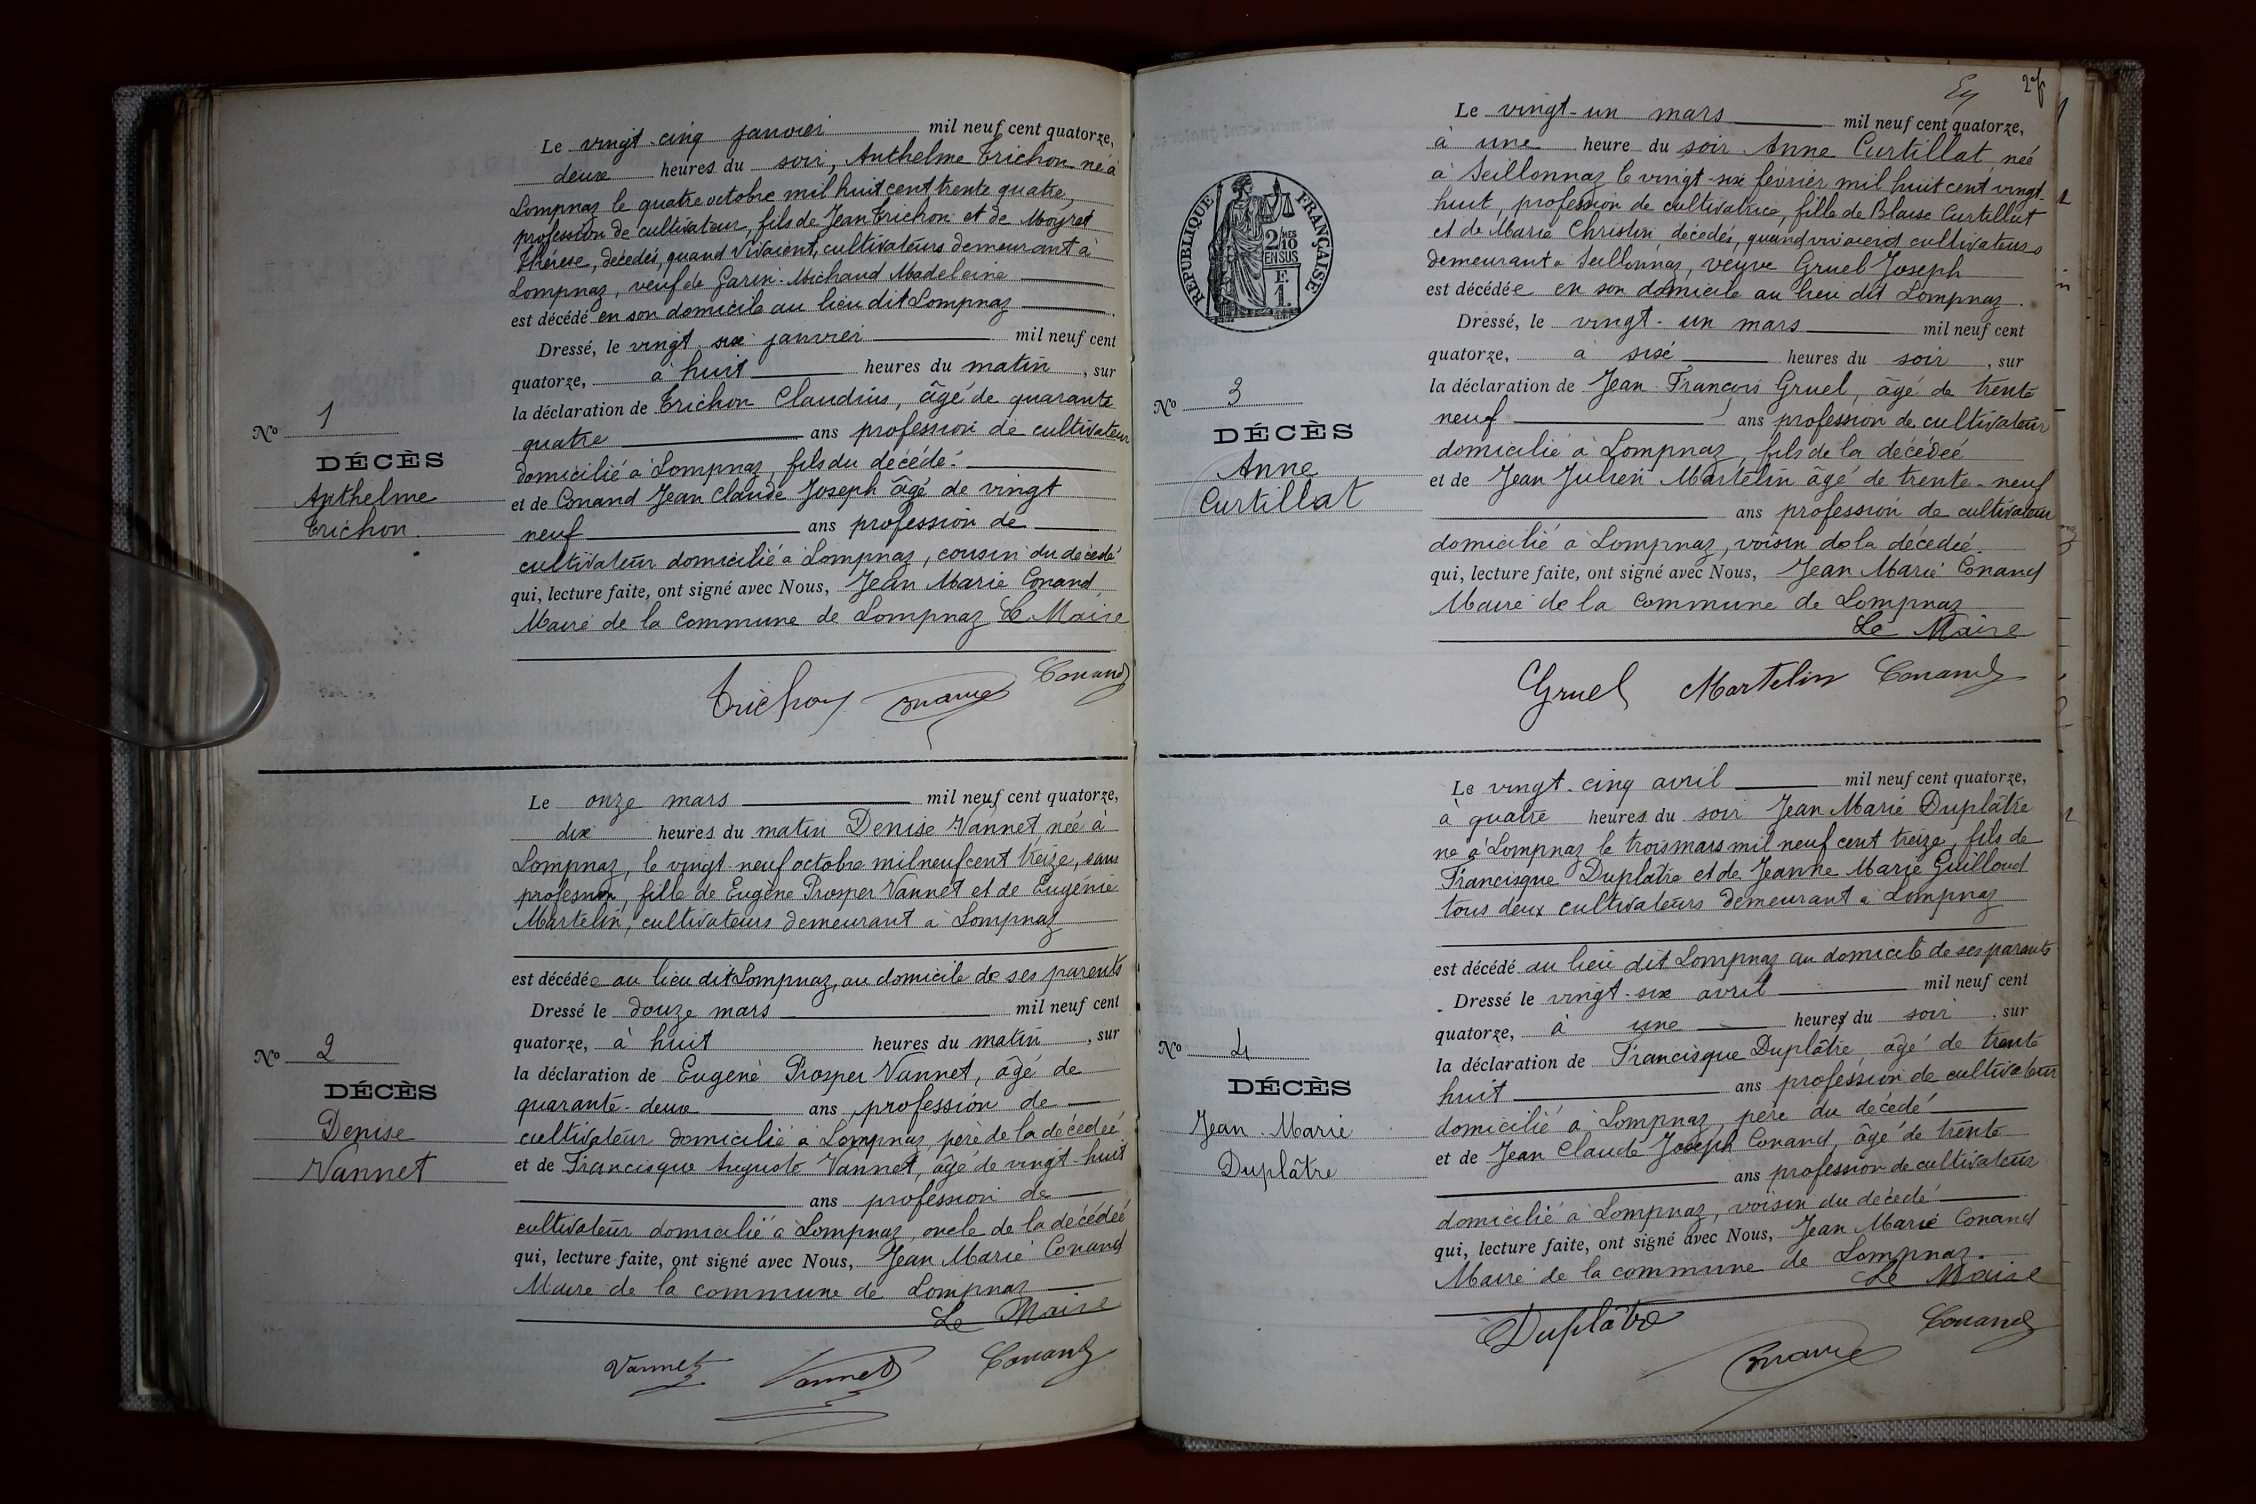 Le vingt-cinq janvier mil neuf cent quatorze,
deux heures du soir, Anthelme Trichon né à
Lompnaz le quatre octobre mil huit cent trente quatre,
profession de cultivateur, fils de Jean Trichon et de Moyret
Thérèse, décédés, quand vivaient, cultivateurs demeurant à
Lompnaz, veuf de Garin-Michaud Madeleine
est décédé en son domicile au lieu dit Lompnaz
Dressé, le vingt six janvier mil neuf cent
quatorze, à huit heures du matin, sur
la déclaration de Trichon Claudius, âgé de quarante
quatre ans profession de cultivateur
domicilié à Lompnaz, fils du décédé.
et de Conand Jean Claude Joseph âgé de vingt
neuf ans profession de
cultivateur domicilié à Lompnaz, cousin du décédé
qui, lecture faite, ont signé avec Nous, Jean Marie Conand
Maire de la Commune de Lompnaz Le Maire
Trichon Conand
Nº 1
DÉCÈS
Anthelme
Trichon.
Le onze mars mil neuf cent quatorze,
dix heures du matin Denise Vannet, née à
Lompnaz, le vingt neuf octobre mil neuf cent treize, sans
profession, fille de Eugène Prosper Vannet et de Eugénie
Martelin, cultivateurs demeurant à Lompnaz
est décédée au lieu dit Lompnaz, au domicile de ses parents
Dressé le douze mars mil neuf cent
quatorze, à huit heures du matin, sur
la déclaration de Eugène Prosper Vannet, âgé de
quarante-deux ans profession de
cultivateur domicilié à Lompnaz, père de la décédée
et de Francisque Auguste Vannet, âgé de vingt-huit
ans profession de
cultivateur domicilié à Lompnaz, oncle de la décédée
qui, lecture faite, ont signé avec Nous, Jean Marie Conand
Maire de la commune de Lompnaz
Le Maire
Vannet Vannet Conand
Nº 2
DÉCÈS
Denise
Vannet
Le vingt-un mars mil neuf cent quatorze,
à une heure du soir Anne Curtillat née
à Seillonnaz le vingt-six février mil huit cent vingt-
huit, profession de cultivatrice, fille de Blaise Curtillat
et de Marie Christin décédés, quand vivaient cultivateurs
demeurant à Seillonnaz, veuve Gruel Joseph
est décédée en son domicile au lieu dit Lompnaz.
Dressé, le vingt-un mars mil neuf cent
quatorze, à sisé heures du soir, sur
la déclaration de Jean-François Gruel, âgé de trente
neuf ans profession de cultivateur
domicilié à Lompnaz, fils de la décédée
et de Jean Julien Martelin âgé de trente-neuf
ans profession de cultivateur
domicilié à Lompnaz, voisin de la décédée.
qui, lecture faite, ont signé avec Nous, Jean Marie Conand
Maire de la Commune de Lompnaz
Le Maire
Gruel Martelin Conand
RÉPUBLIQUE FRANÇAISE
2 MES
10
EN SUS
F.
1.
Nº 3
DÉCÈS
Anne
Curtillat
Le vingt-cinq avril mil neuf cent quatorze,
à quatre heures du soir Jean Marie Duplâtre
né à Lompnaz le trois mars mil neuf cent treize, fils de
Francisque Duplâtre et de Jeanne Marie Guilloud
tous deux cultivateurs demeurant à Lompnaz
est décédé au lieu dit Lompnaz au domicile de ses parents
Dressé le vingt-six avril mil neuf cent
quatorze, à une heures du soir, sur
la déclaration de Francisque Duplâtre, âgé de trente
huit ans profession de cultivateur
domicilié à Lompnaz, père du décédé
et de Jean Claude Joseph Conand, âgé de trente
ans profession de cultivateur
domicilié à Lompnaz, voisin du décédé
qui, lecture faite, ont signé avec Nous, Jean Marie Conand
Maire de la commune de Lompnaz.
Le Maire
Duplâtre Conand
Nº 4
DÉCÈS
Jean-Marie
Duplâtre